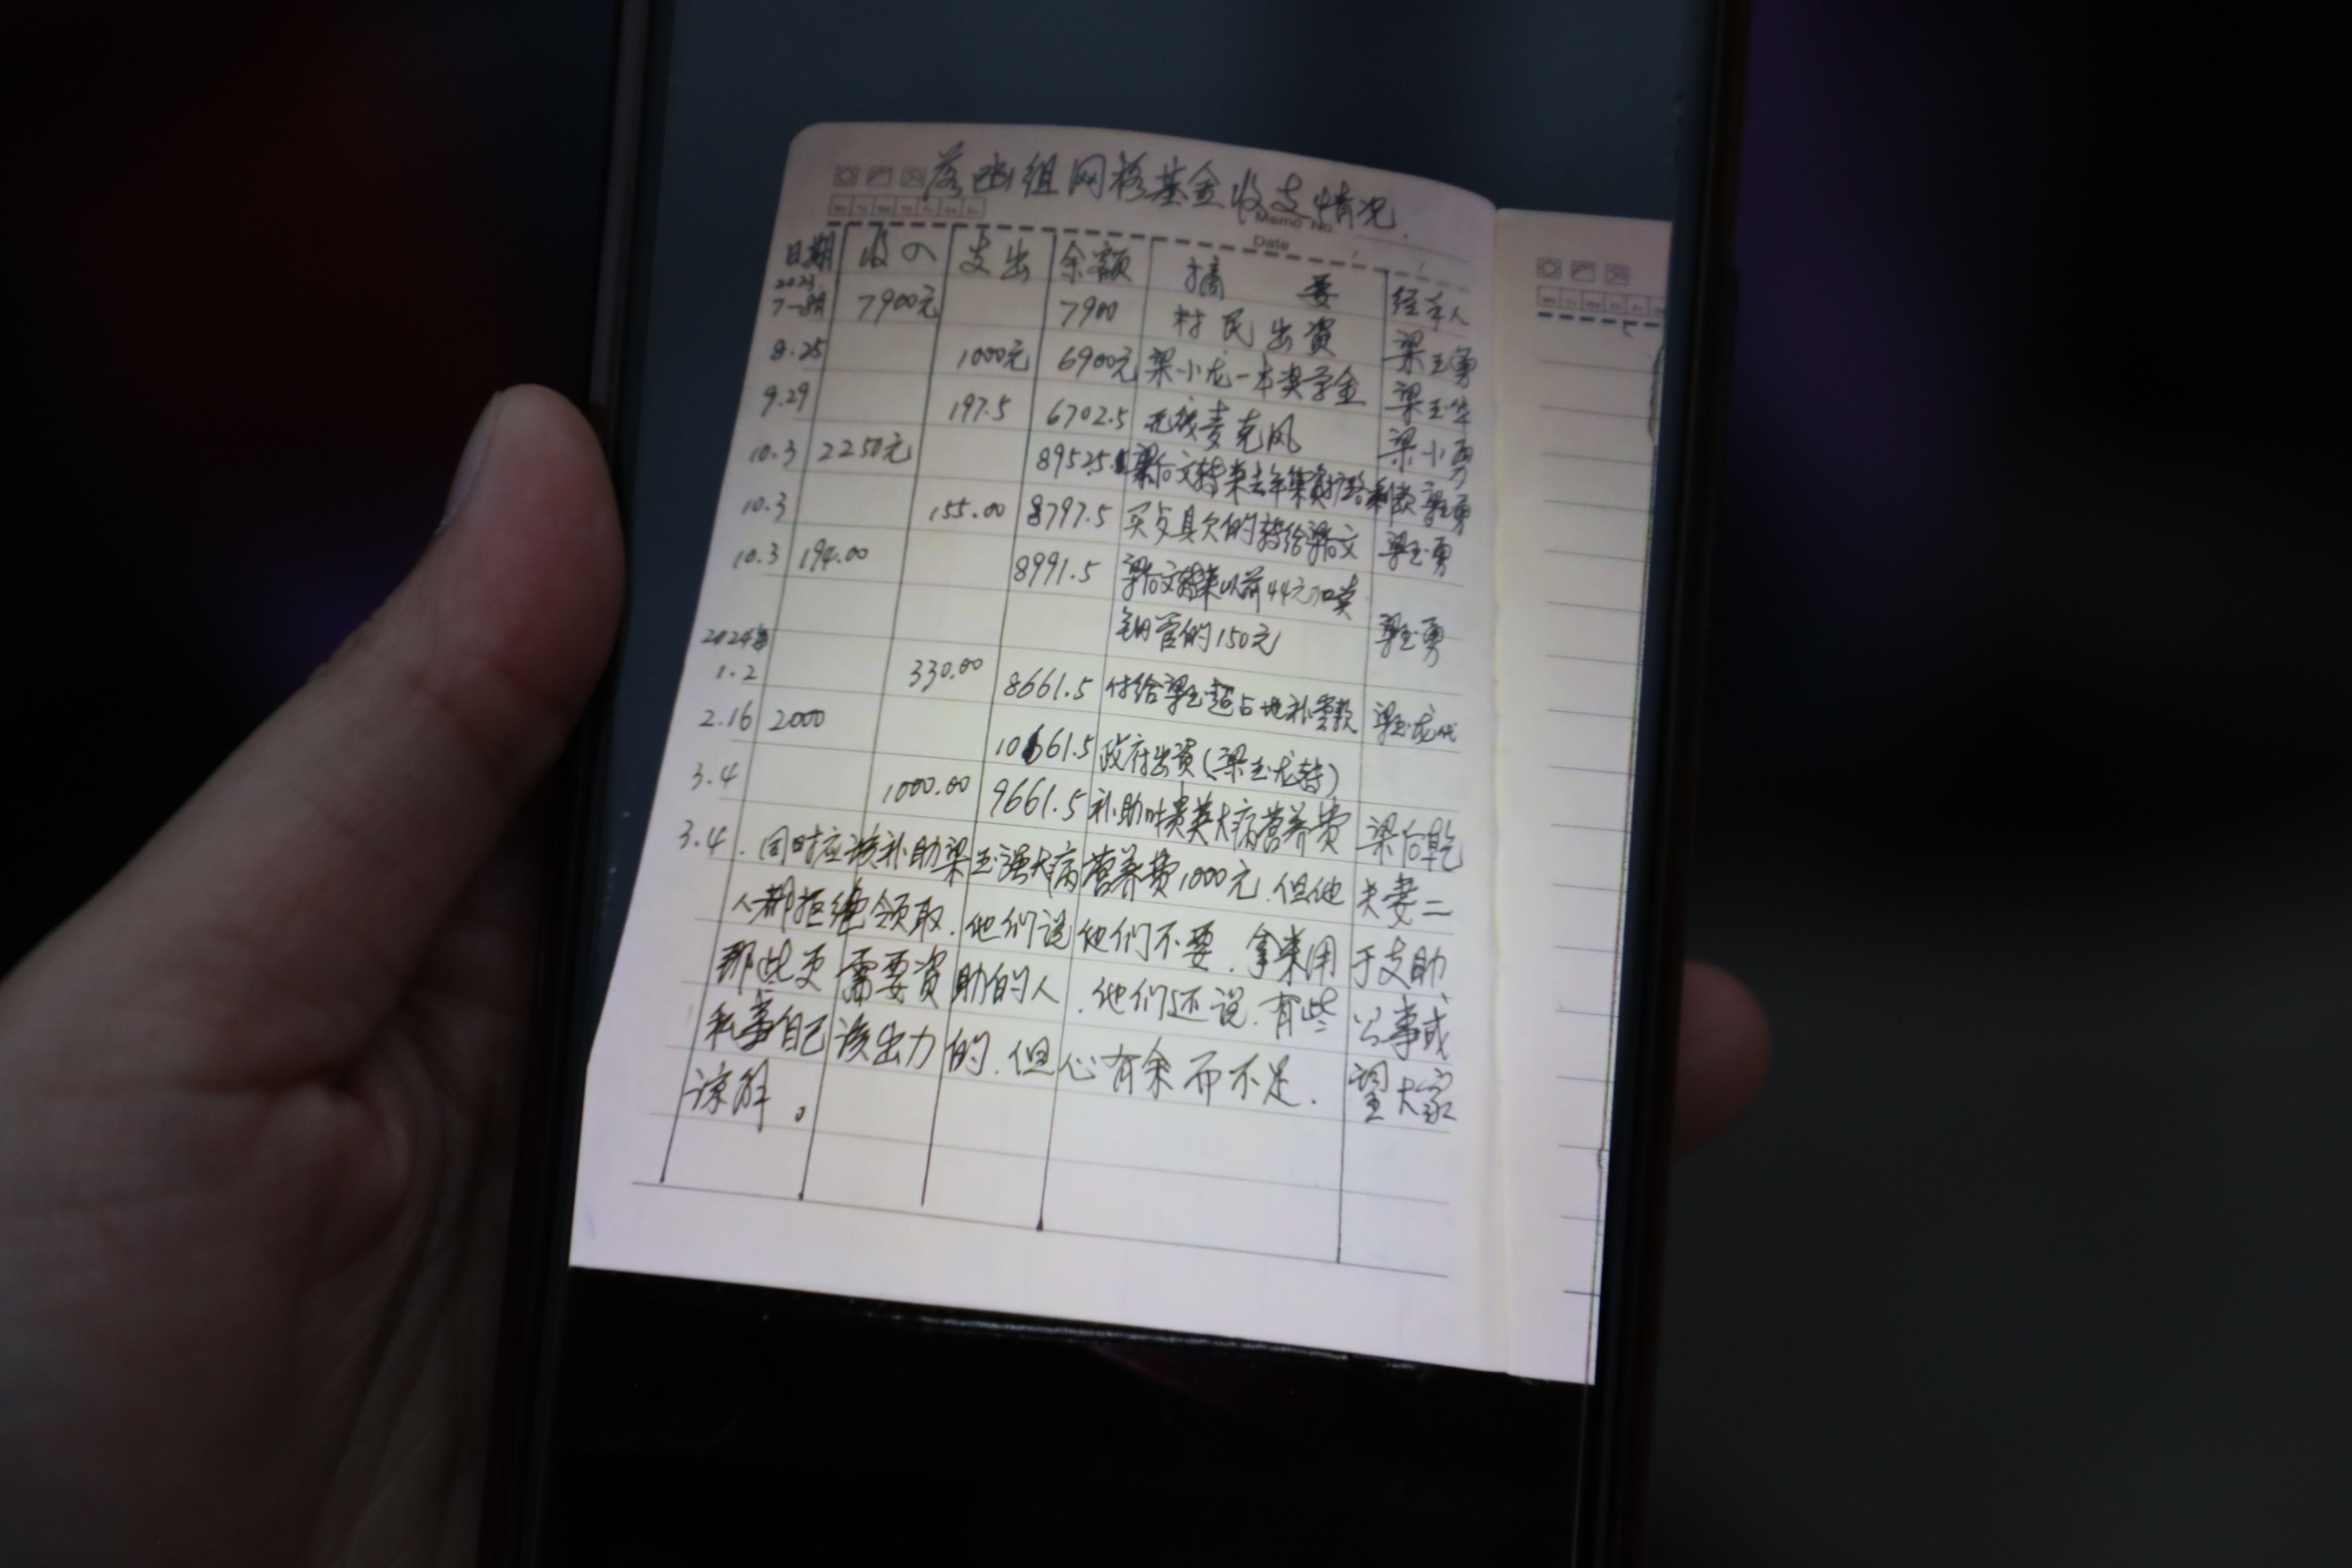 落凼组网格基金收支情况.
Memo No.
Date
日期 收入 支出 余额 摘要 经手人
2023
7-8月 7900元 7900 村民出资 梁玉勇
8.25 1000元 6900元 梁小龙一本奖学金 梁玉生
9.29 197.5 6702.5 无线麦克风 梁小勇
10.3 2250元 8952.5 梁后文转来去年集资扩路剩款 梁玉勇
10.3 155.00 8797.5 买 具欠的转给梁后文 梁玉勇
10.3 194.00 8991.5 梁后文转来以前44元加卖
钢管的150元 梁玉勇
2024年
1.2 330.00 8661.5 付给梁玉超占地补 款 梁玉龙代
2.16 2000 10661.5 政府出资(梁玉龙转)
3.4 1000.00 9661.5 补助叶贵英大病营养费 梁后乾
3.4. 同时应该补助梁玉强大病营养费1000元.但他夫妻二
人都拒绝领取.他们说他们不要.拿来用于支助
那些更需要资助的人.他们还说.有些公事或
私事自己该出力的.但心有余而不足.望大家
谅解。